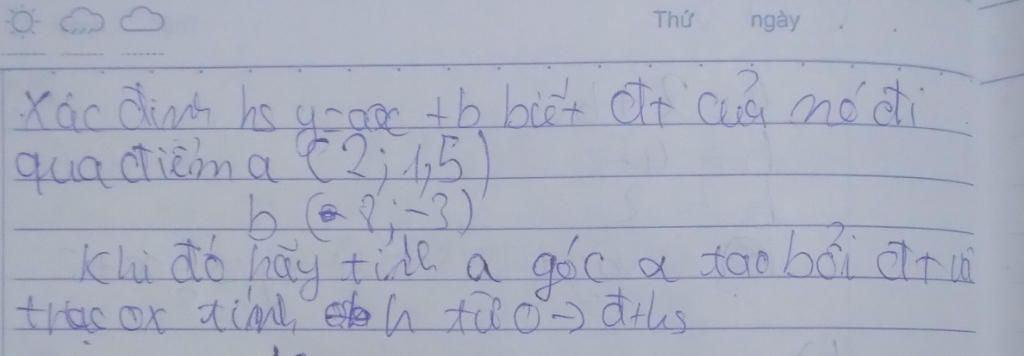 Thứ ngày
Xác định hs y=ax+b biết đt của nó đi
qua điểm a (2; 1,5)
b (8; -3)
Khi đó hãy tính a góc α tạo bởi đt và
trục ox tính h từ O → đths